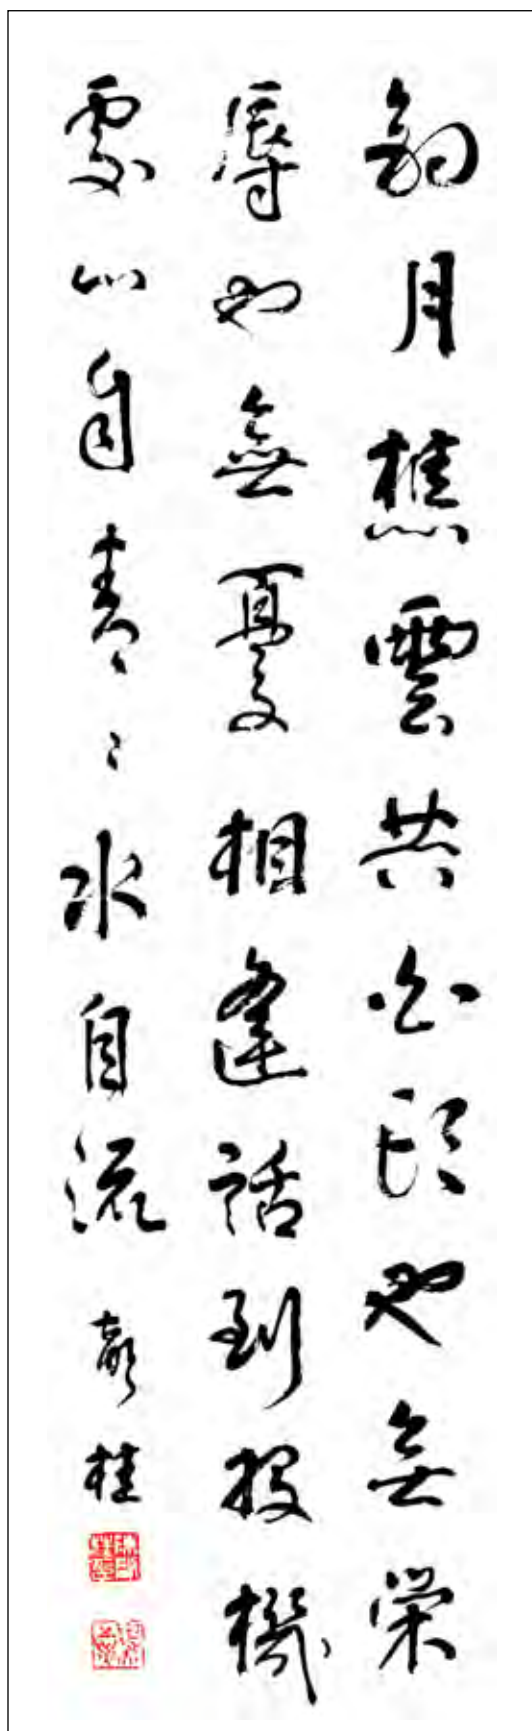 釣月樵雲共白頭也無榮
辱也無憂相逢話到投機
處山自青〻水自流
桂